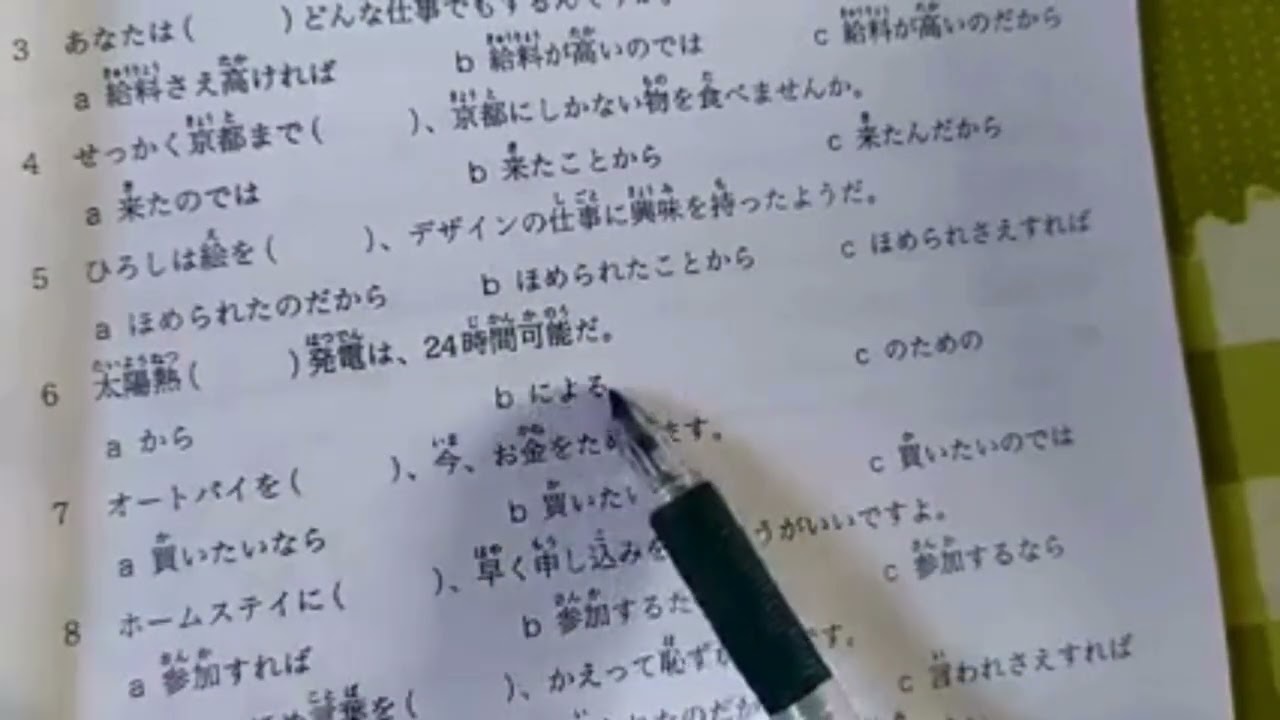 3 あなたは( )どんな仕事でもするんですか。
a 給料さえ高ければ b 給料が高いのでは c 給料が高いのだから
4 せっかく京都まで( )、京都にしかない物を食べませんか。
a 来たのでは b 来たことから c 来たんだから
5 ひろしは絵を( )、デザインの仕事に興味を持ったようだ。
a ほめられたのだから b ほめられたことから c ほめられさえすれば
6 太陽熱( )発電は、24時間可能だ。
a から b による c のための
7 オートバイを( )、今、お金をた ます。
a 買いたいなら b 買いたい c 買いたいのでは
8 ホームステイに( )、早く申し込みを うがいいですよ。
a 参加すれば b 参加するた c 参加するなら
言葉を( )、かえって恥ず です。
c 言われさえすれば